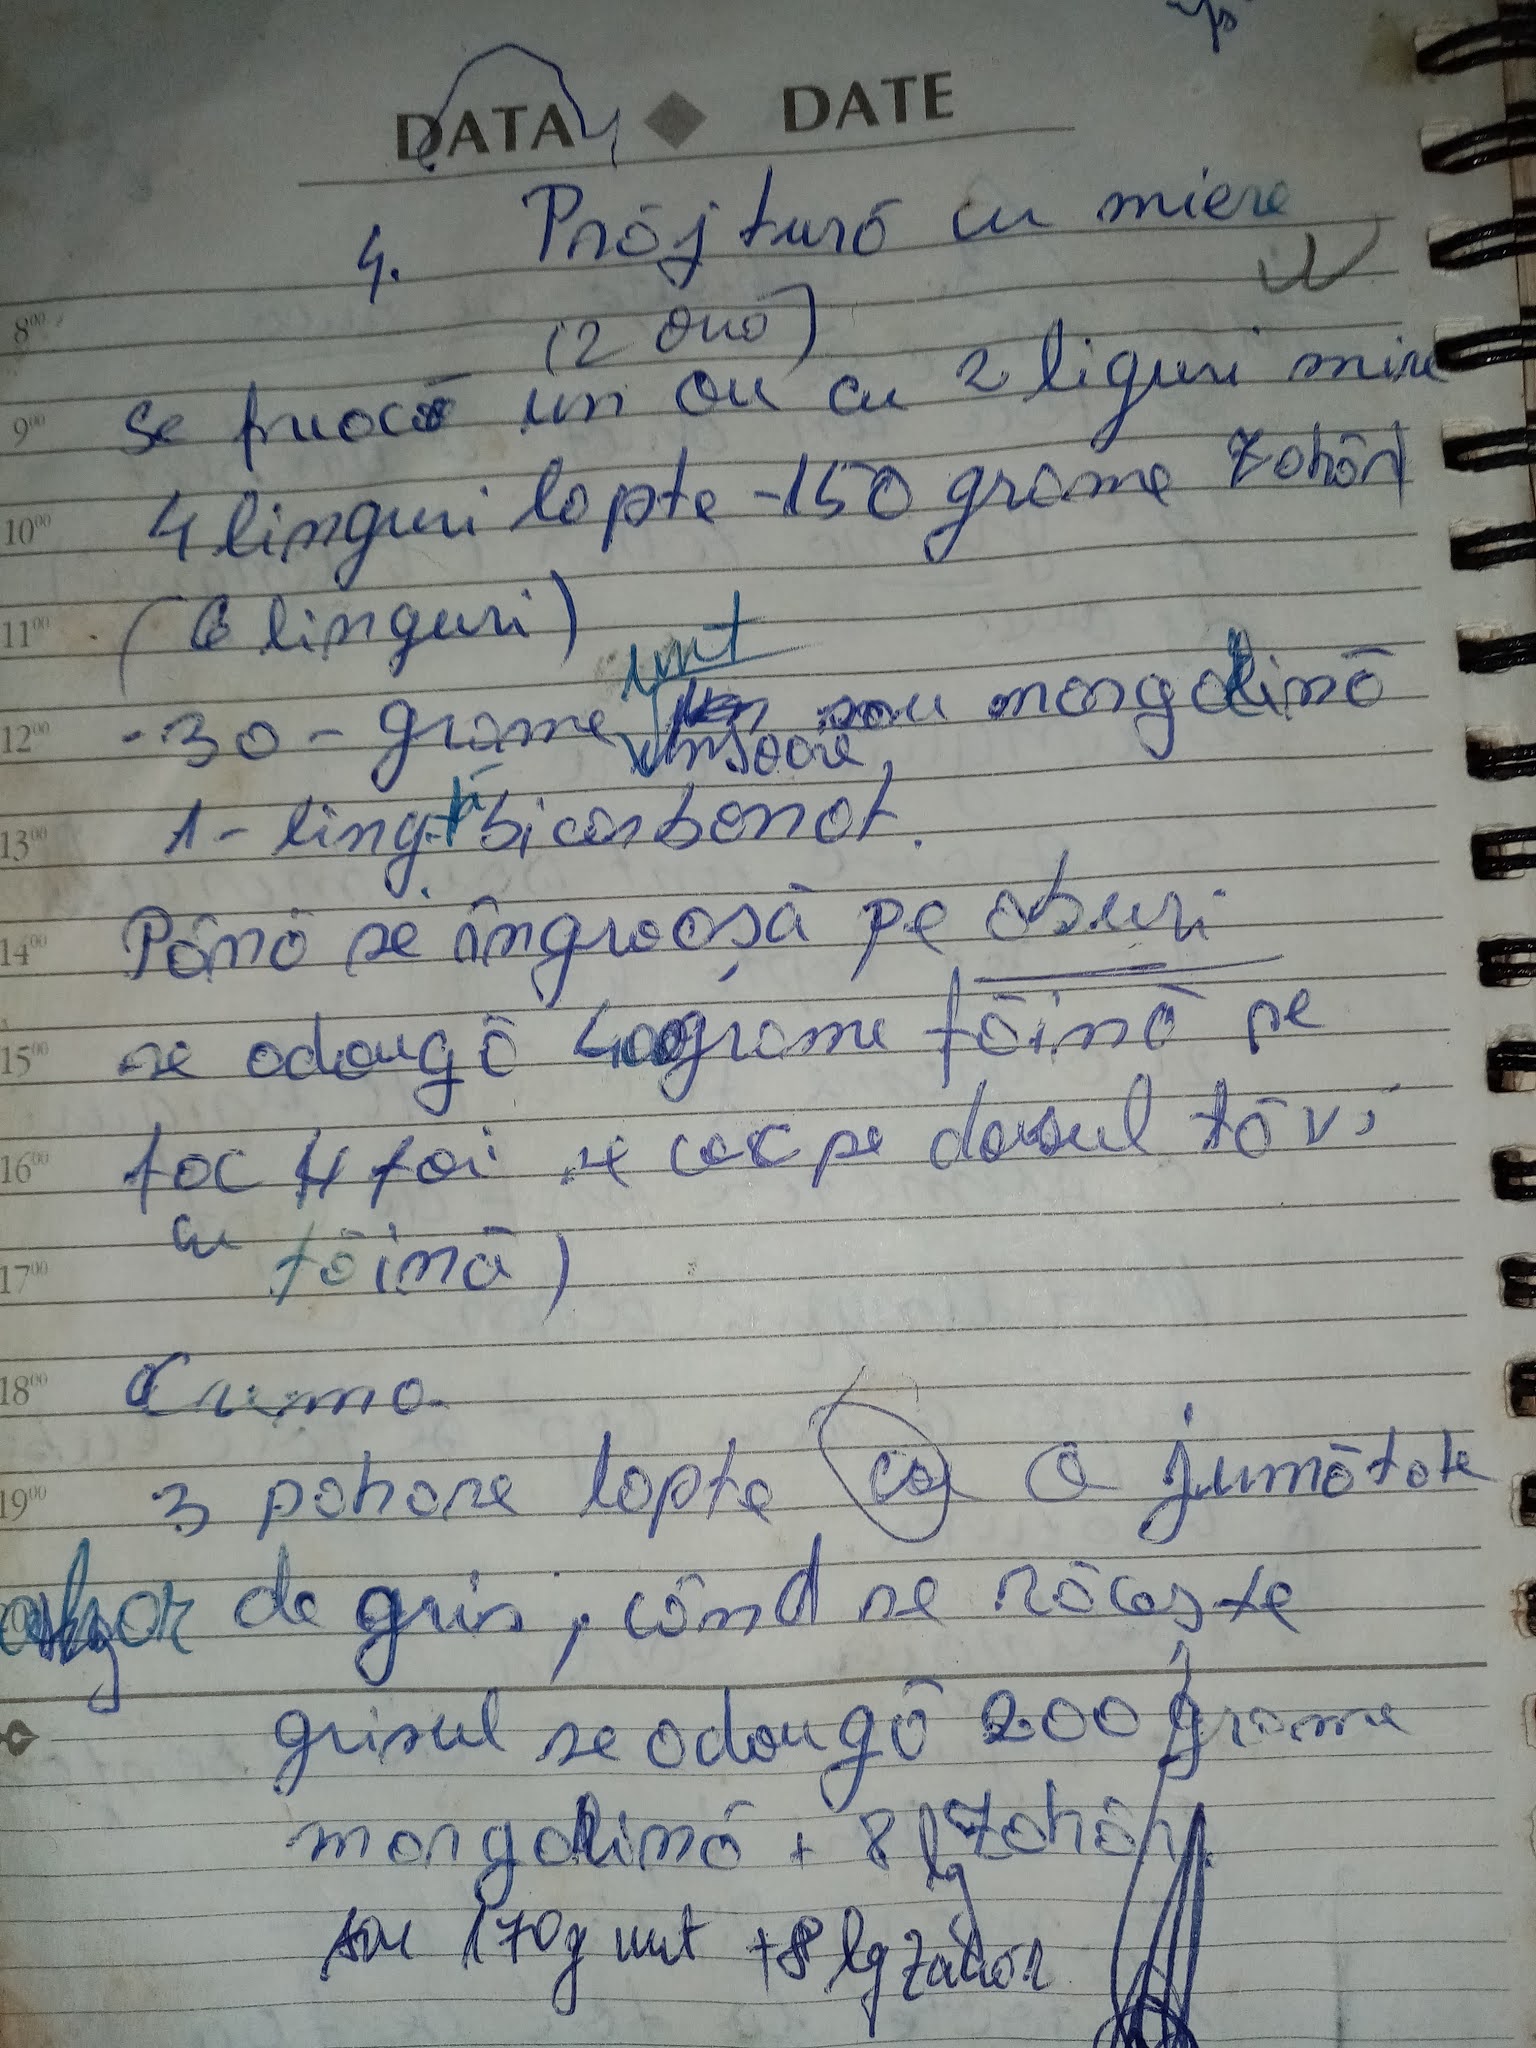 DATA ◆ DATE
4. Prăjtură cu miere
(2 ouă)
8⁰⁰
9⁰⁰ Se fruacă un ou cu 2 liguri mire
10⁰⁰ 4 linguri lapte - 150 grame zahăr
11⁰⁰ (6 linguri)
unt
12⁰⁰ - 30 - grame sau margarină
13⁰⁰ 1 - ling-tă bicarbonat.
14⁰⁰ Până se îngroașă pe aburi
15⁰⁰ se adaugă 400 grame făină pe
16⁰⁰ foc 4 foi se coc pe dosul tăvi
17⁰⁰ cu făină)
18⁰⁰ Crema
19⁰⁰ 3 pahare lapte ca o jumătate
de gris, când se răcește
grisul se adaugă 200 grame
margarină + 8 lg zahăr
sau 170g unt + 8 lg zahăr